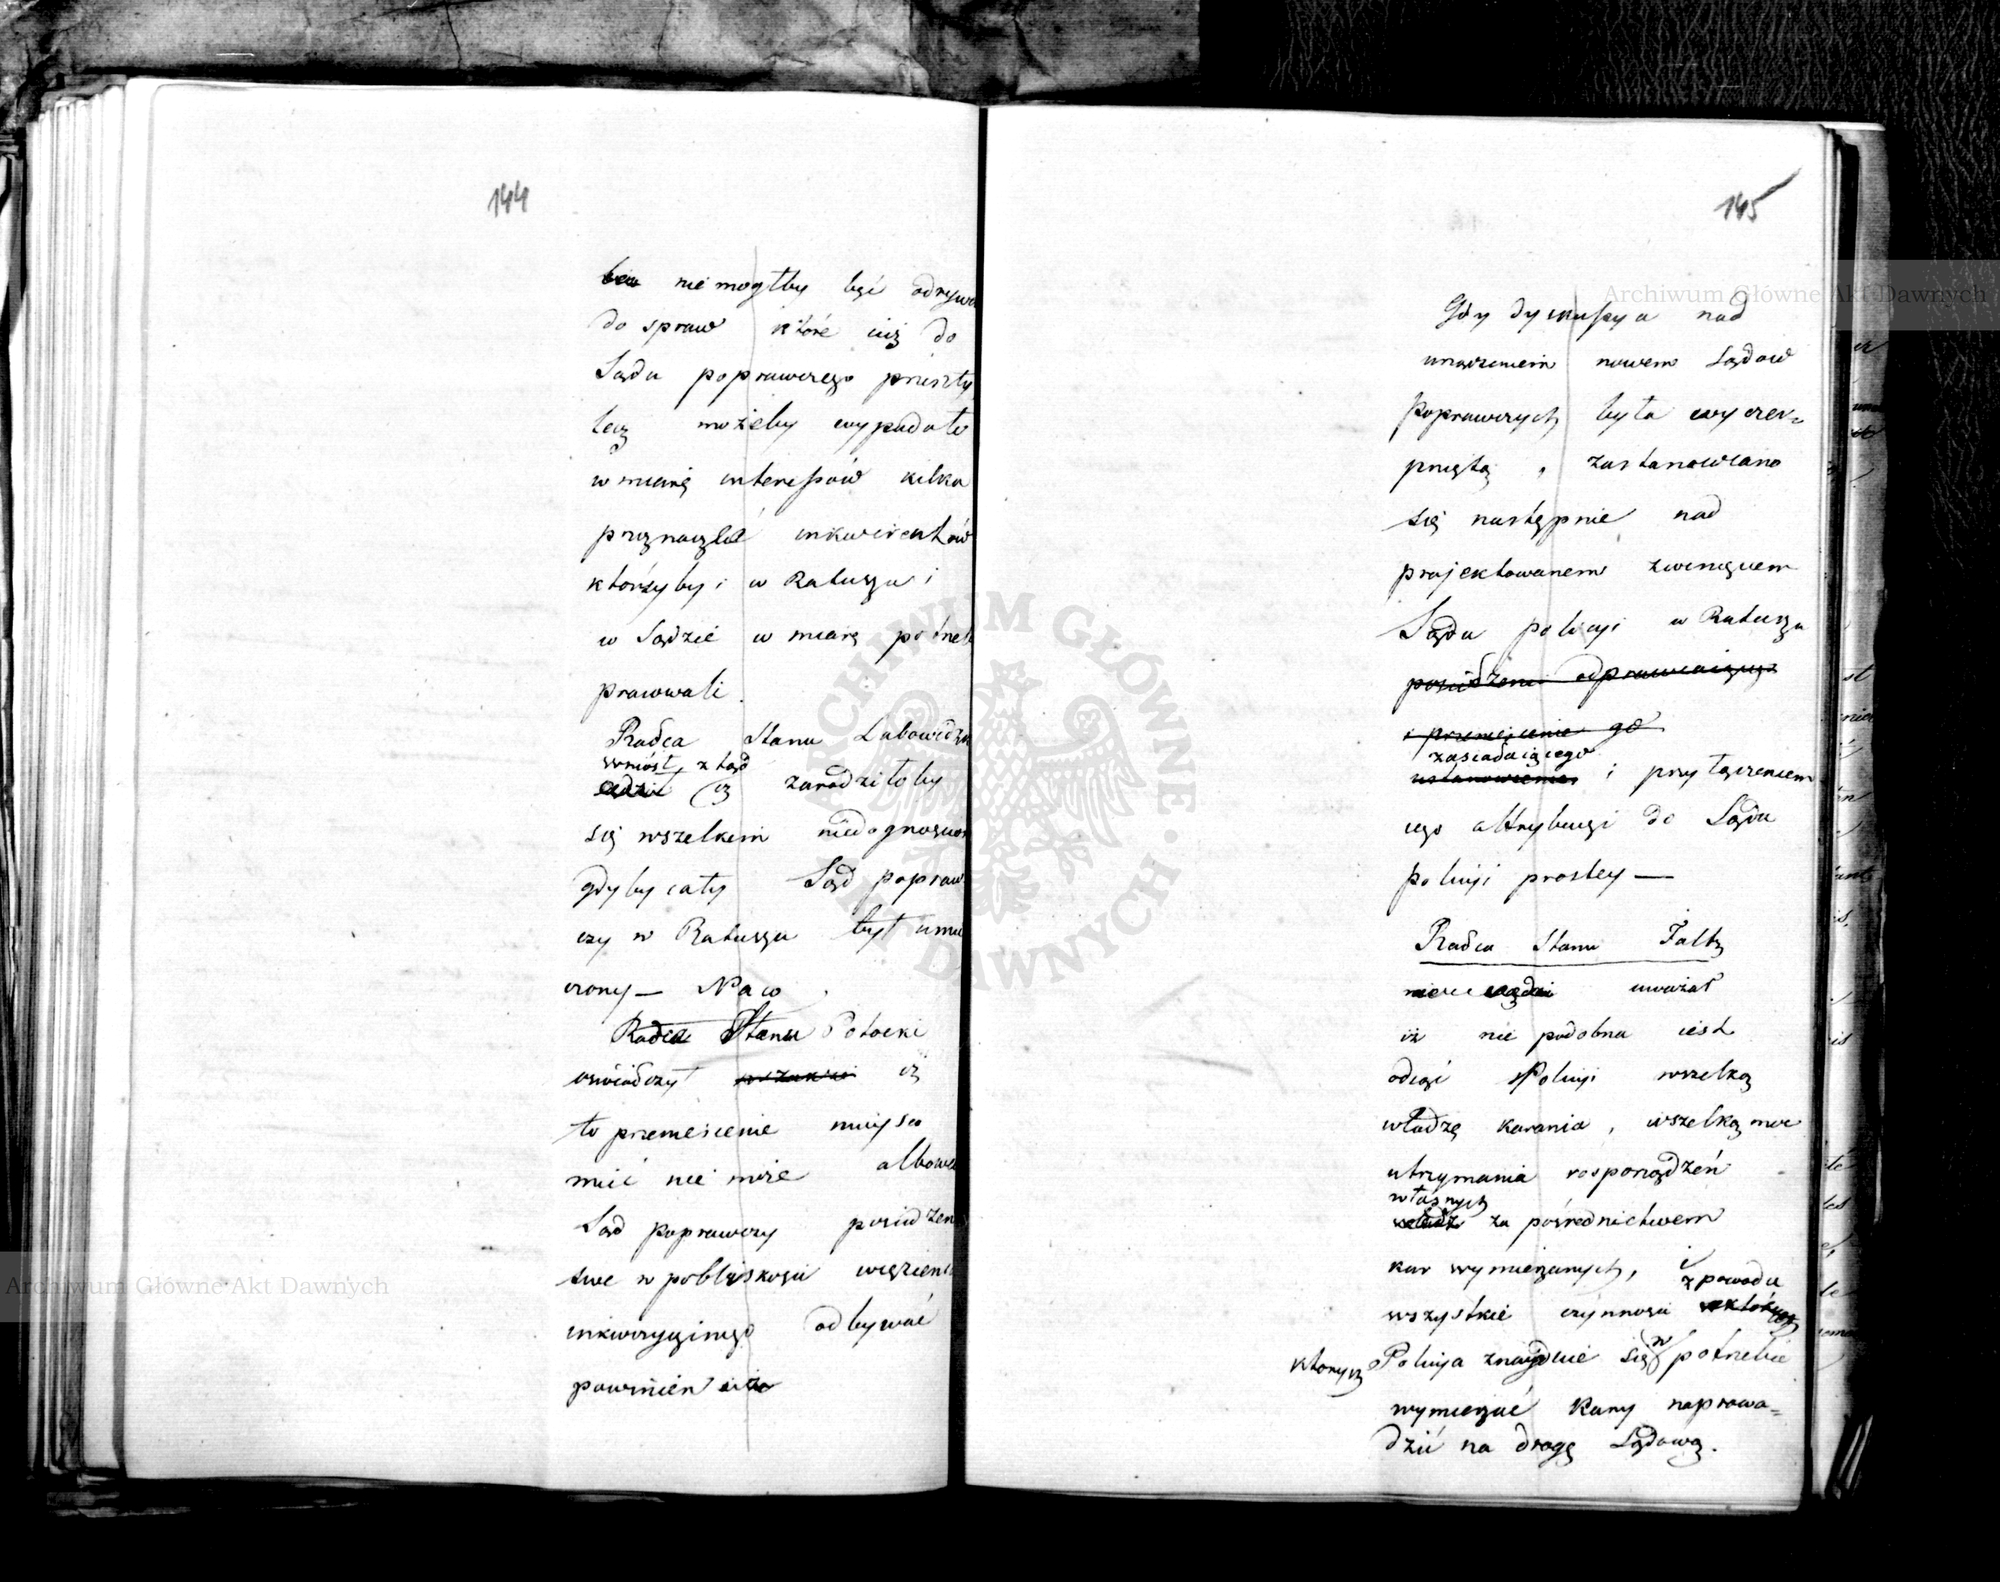 144
nie mogłby być odrywa
do spraw które iuż do
Sądu poprawczego przeszły
lecz możeby wypadało
w miarę interesów kilka
przeznaczać inkwirentów
którzyby i w Ratuszu i
w Sądzie w miarę potrzeb
pracowali.
Radca Stanu Lubowidzk
wniosł, z tąd
iż zaradziłoby
się wszelkim niedogodnos
gdyby cały Sąd popraw
czy w Ratuszu był umie
czony — Na co
Radca Stanu Potocki
oświadczył wszakże iż
to przemieszcenie mieysca
mieć nie może albowie
Sąd poprawczy posiedzen
swe w pobliskości więzieni
inkwizycyjnego odbywać
powinien
145
Gdy dyskussya nad
urządzeniem nowem Sądow
Poprawczych była wyczer-
pniętą, zastanowiano
się następnie nad
projektowanem zwinięciem
Sądu policyi w Ratuszu
posiedzenia odprawiaiącego
i przeniesienie go
zasiadaiącego
ustanowienia i przyłączeniem
iego attrybucyi do Sądu
policyi prostey —
Radca Stanu Faltz
uważał
iż nie podobna iest
odiąć Policyi wszelką
władzę karania, wszelką moc
utrzymania rosporządzeń
własnych
władz za pośrednictwem
kar wymierzanych, i
z powodu
wszystkie czynnosci
których Policya znaydzie się w potrzebie
wymierzać kary naprowa-
dzić na drogę Sądową.
Archiwum Główne Akt Dawnych
Archiwum Główne Akt Dawnych
ARCHIWUM GŁÓWNE AKT DAWNYCH